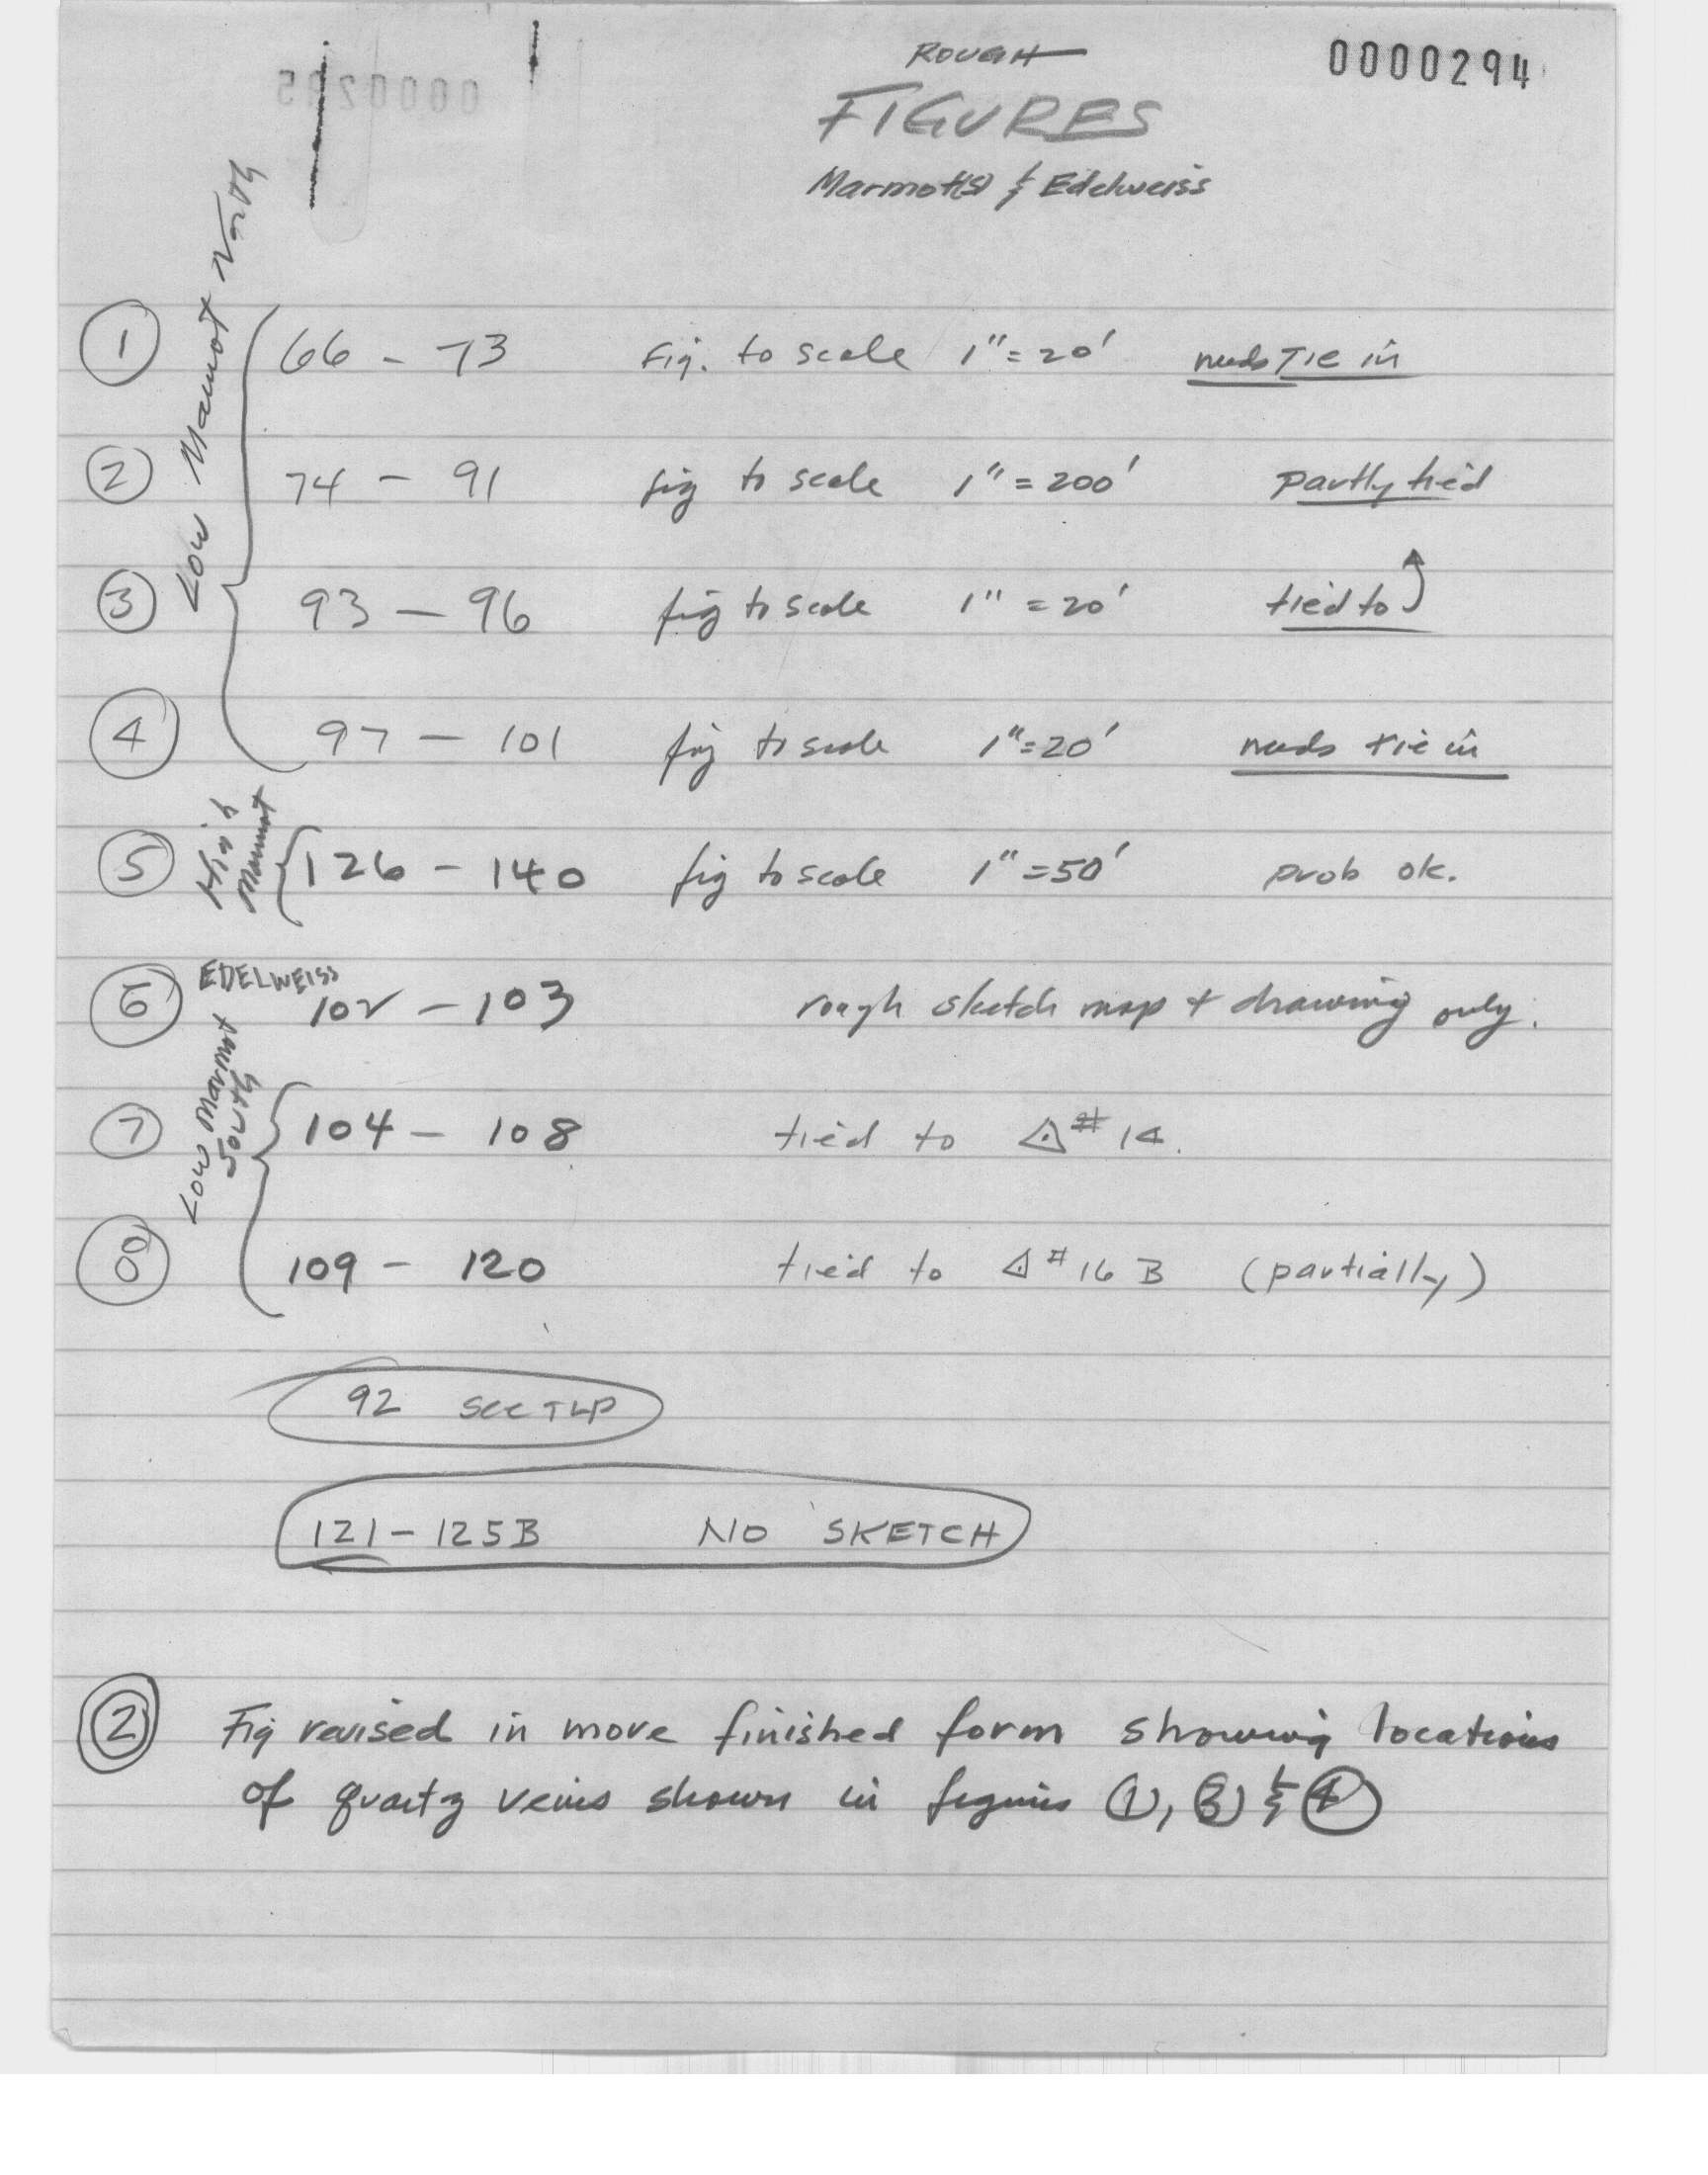 0000294
ROUGH
FIGURES
Marmot(s) & Edelweiss
Low Marmot North
① 66 - 73 Fig. to scale 1" = 20' needs Tie in
② 74 - 91 fig to scale 1" = 200' partly tied
③ 93 - 96 fig to scale 1" = 20' tied to
④ 97 - 101 fig to scale 1" = 20' needs tie in
High Marmot
⑤ 126 - 140 fig to scale 1" = 50' prob ok.
EDELWEISS
⑥ 102 - 103 rough sketch map + drawing only.
Low Marmot South
⑦ 104 - 108 tied to △ # 14.
⑧ 109 - 120 tied to △ # 16 B (partially)
92 See TLP
121 - 125B NO SKETCH
② Fig revised in more finished form showing locations
of quartz veins shown in figures ①, ③ & ④